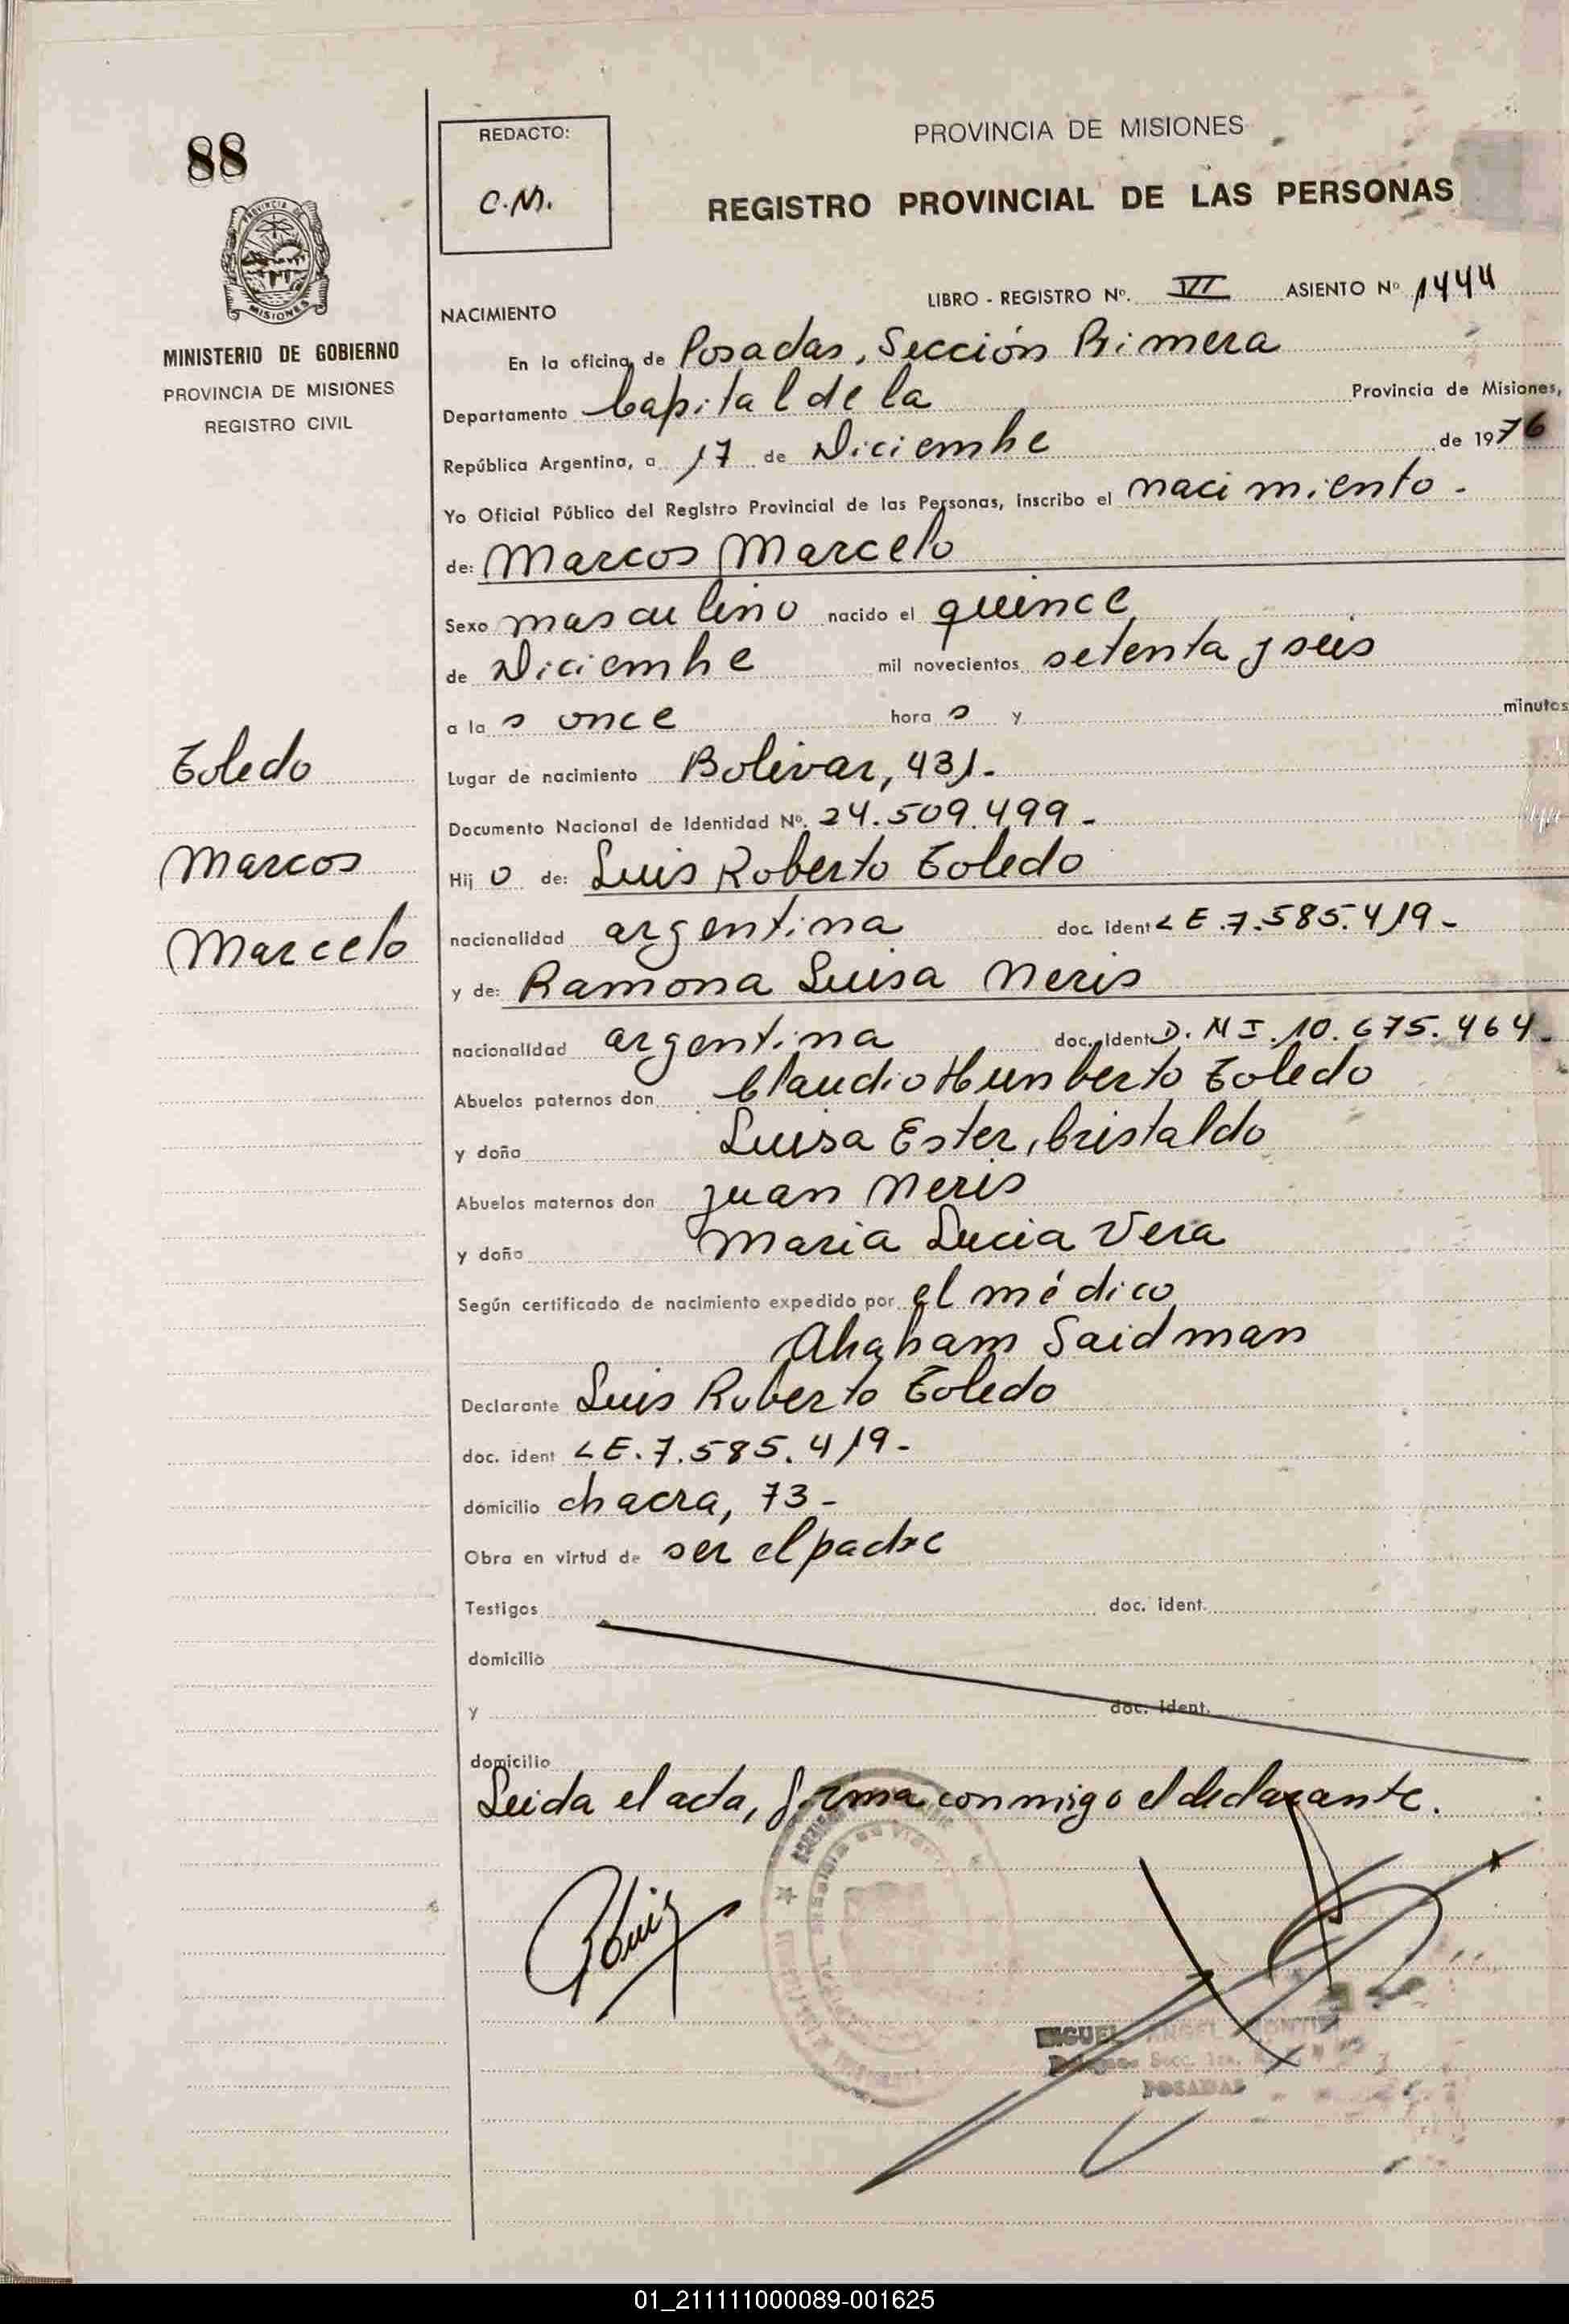 88
PROVINCIA DE MISIONES
MINISTERIO DE GOBIERNO
PROVINCIA DE MISIONES
REGISTRO CIVIL
Toledo
Marcos
Marcelo
REDACTO:
C.M.
PROVINCIA DE MISIONES
REGISTRO PROVINCIAL DE LAS PERSONAS
LIBRO - REGISTRO Nº. VI ASIENTO Nº 1444
NACIMIENTO
En la oficina de Posadas, Sección Primera
Departamento Capital de la Provincia de Misiones,
República Argentina, a 17 de Diciembre de 1976
Yo Oficial Público del Registro Provincial de las Personas, inscribo el nacimiento.
de: Marcos Marcelo
Sexo masculino nacido el quince
de Diciembre mil novecientos setenta y seis
a la s once hora s y minutos
Lugar de nacimiento Bolivar, 431.
Documento Nacional de Identidad Nº. 24.509.499 -
Hij o de: Luis Roberto Toledo
nacionalidad argentina doc. ident LE.7.585.419 -
y de: Ramona Luisa Neris
nacionalidad argentina doc. ident D.N I.10.675.464.
Abuelos paternos don Claudio Humberto Toledo
y doña Luisa Ester, Cristaldo
Abuelos maternos don Juan Neris
y doña Maria Lucia Vera
Según certificado de nacimiento expedido por el médico
Abraham Saidman
Declarante Luis Roberto Toledo
doc. ident LE.7.585.419 -
domicilio chacra, 73 -
Obra en virtud de ser el padre
Testigos doc. ident.
domicilio
y doc. ident.
domicilio
Leida el acta, firma conmigo el declarante.
MIGUEL ANGEL
Secc. 1ra.
POSADAS
01_211111000089-001625